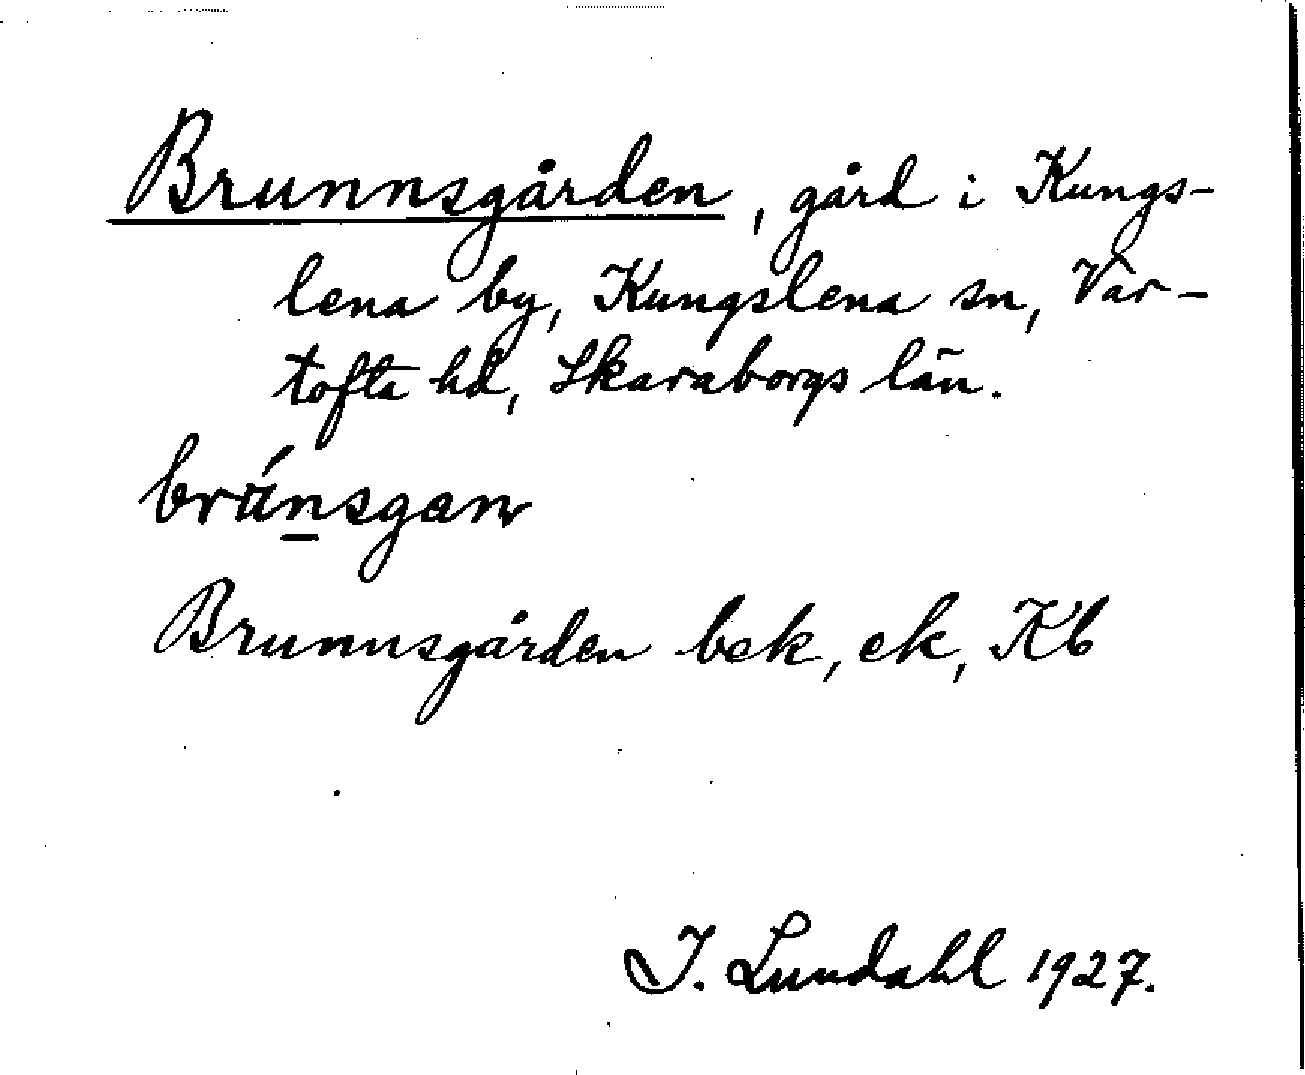 Brunnsgården, gård i Kungs-
lena by, Kungslena sn, Var-
tofta hd, Skaraborgs län.
bru̇́nsgan
Brunnsgården bek, ek, Kb
I. Lundahl 1927.